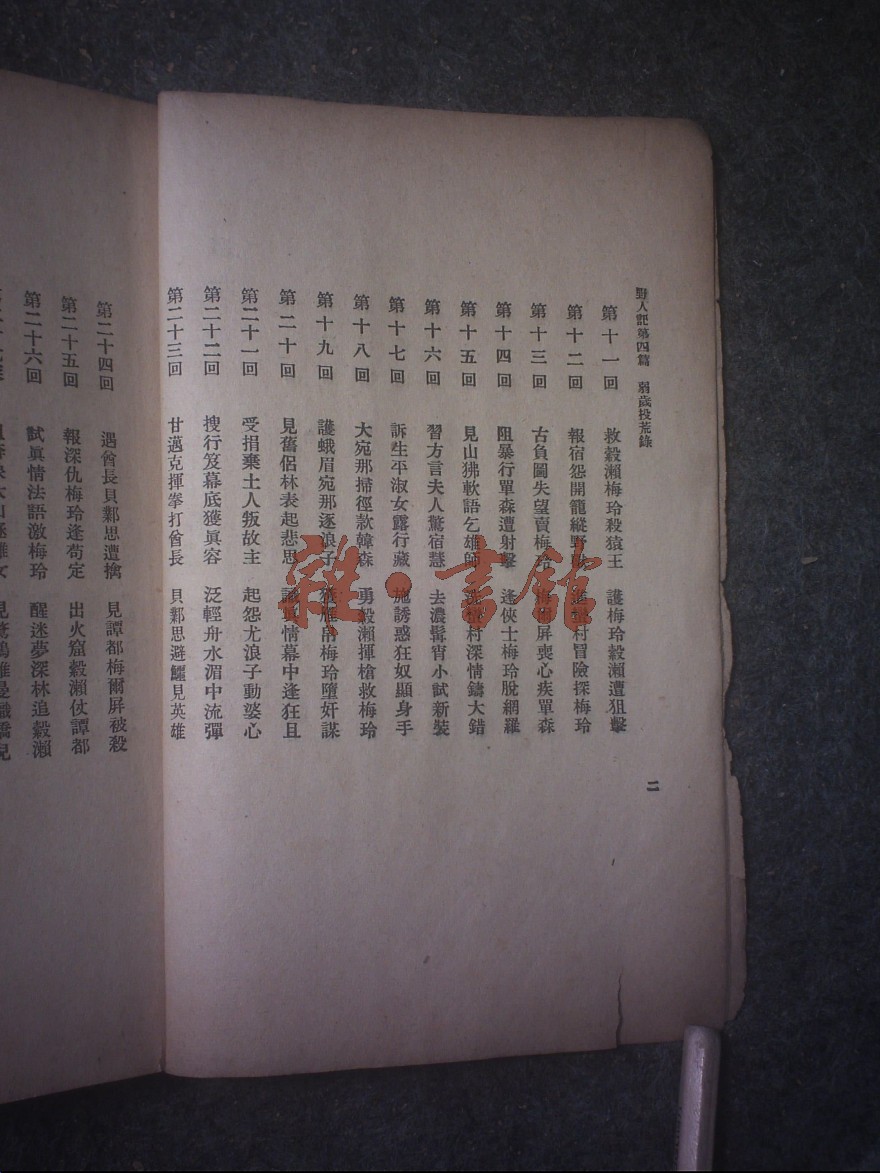 野人記第四篇 弱歲投荒錄
第十一回 救穀瀨梅玲殺猿王 護梅玲穀瀨遭狙擊
第十二回 報宿怨開籠縱野 村冒險探梅玲
第十三回 古負圖失望賣梅玲 爾屏喪心疾單森
第十四回 阻暴行單森遭射擊 逢俠士梅玲脫網羅
第十五回 見山狒軟語乞雄師 村深情鑄大錯
第十六回 習方言夫人驚宿慧 去濃髯宵小試新裝
第十七回 訴生平淑女露行藏 施誘惑狂奴顯身手
第十八回 大宛那掃徑款韓森 勇穀瀨揮槍救梅玲
第十九回 護蛾眉宛那逐浪子 雁帛梅玲墮奸謀
第二十回 見舊侶林表起悲思 識眞情幕中逢狂且
第二十一回 受捐棄土人叛故主 起怨尤浪子動婆心
第二十二回 搜行笈幕底獲眞容 泛輕舟水湄中流彈
第二十三回 甘邁克揮拳打酋長 貝鄴思避鱷見英雄
二
第二十四回 遇酋長貝鄴思遭擒 見譚都梅爾屏被殺
第二十五回 報深仇梅玲逢苟定 出火窟穀瀨仗譚都
第二十六回 試眞情法語激梅玲 醒迷夢深林追穀瀨
雜·書館